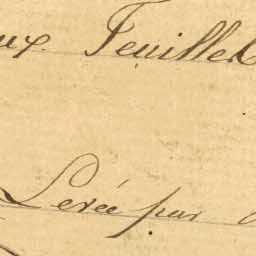 Feuille
Levée par